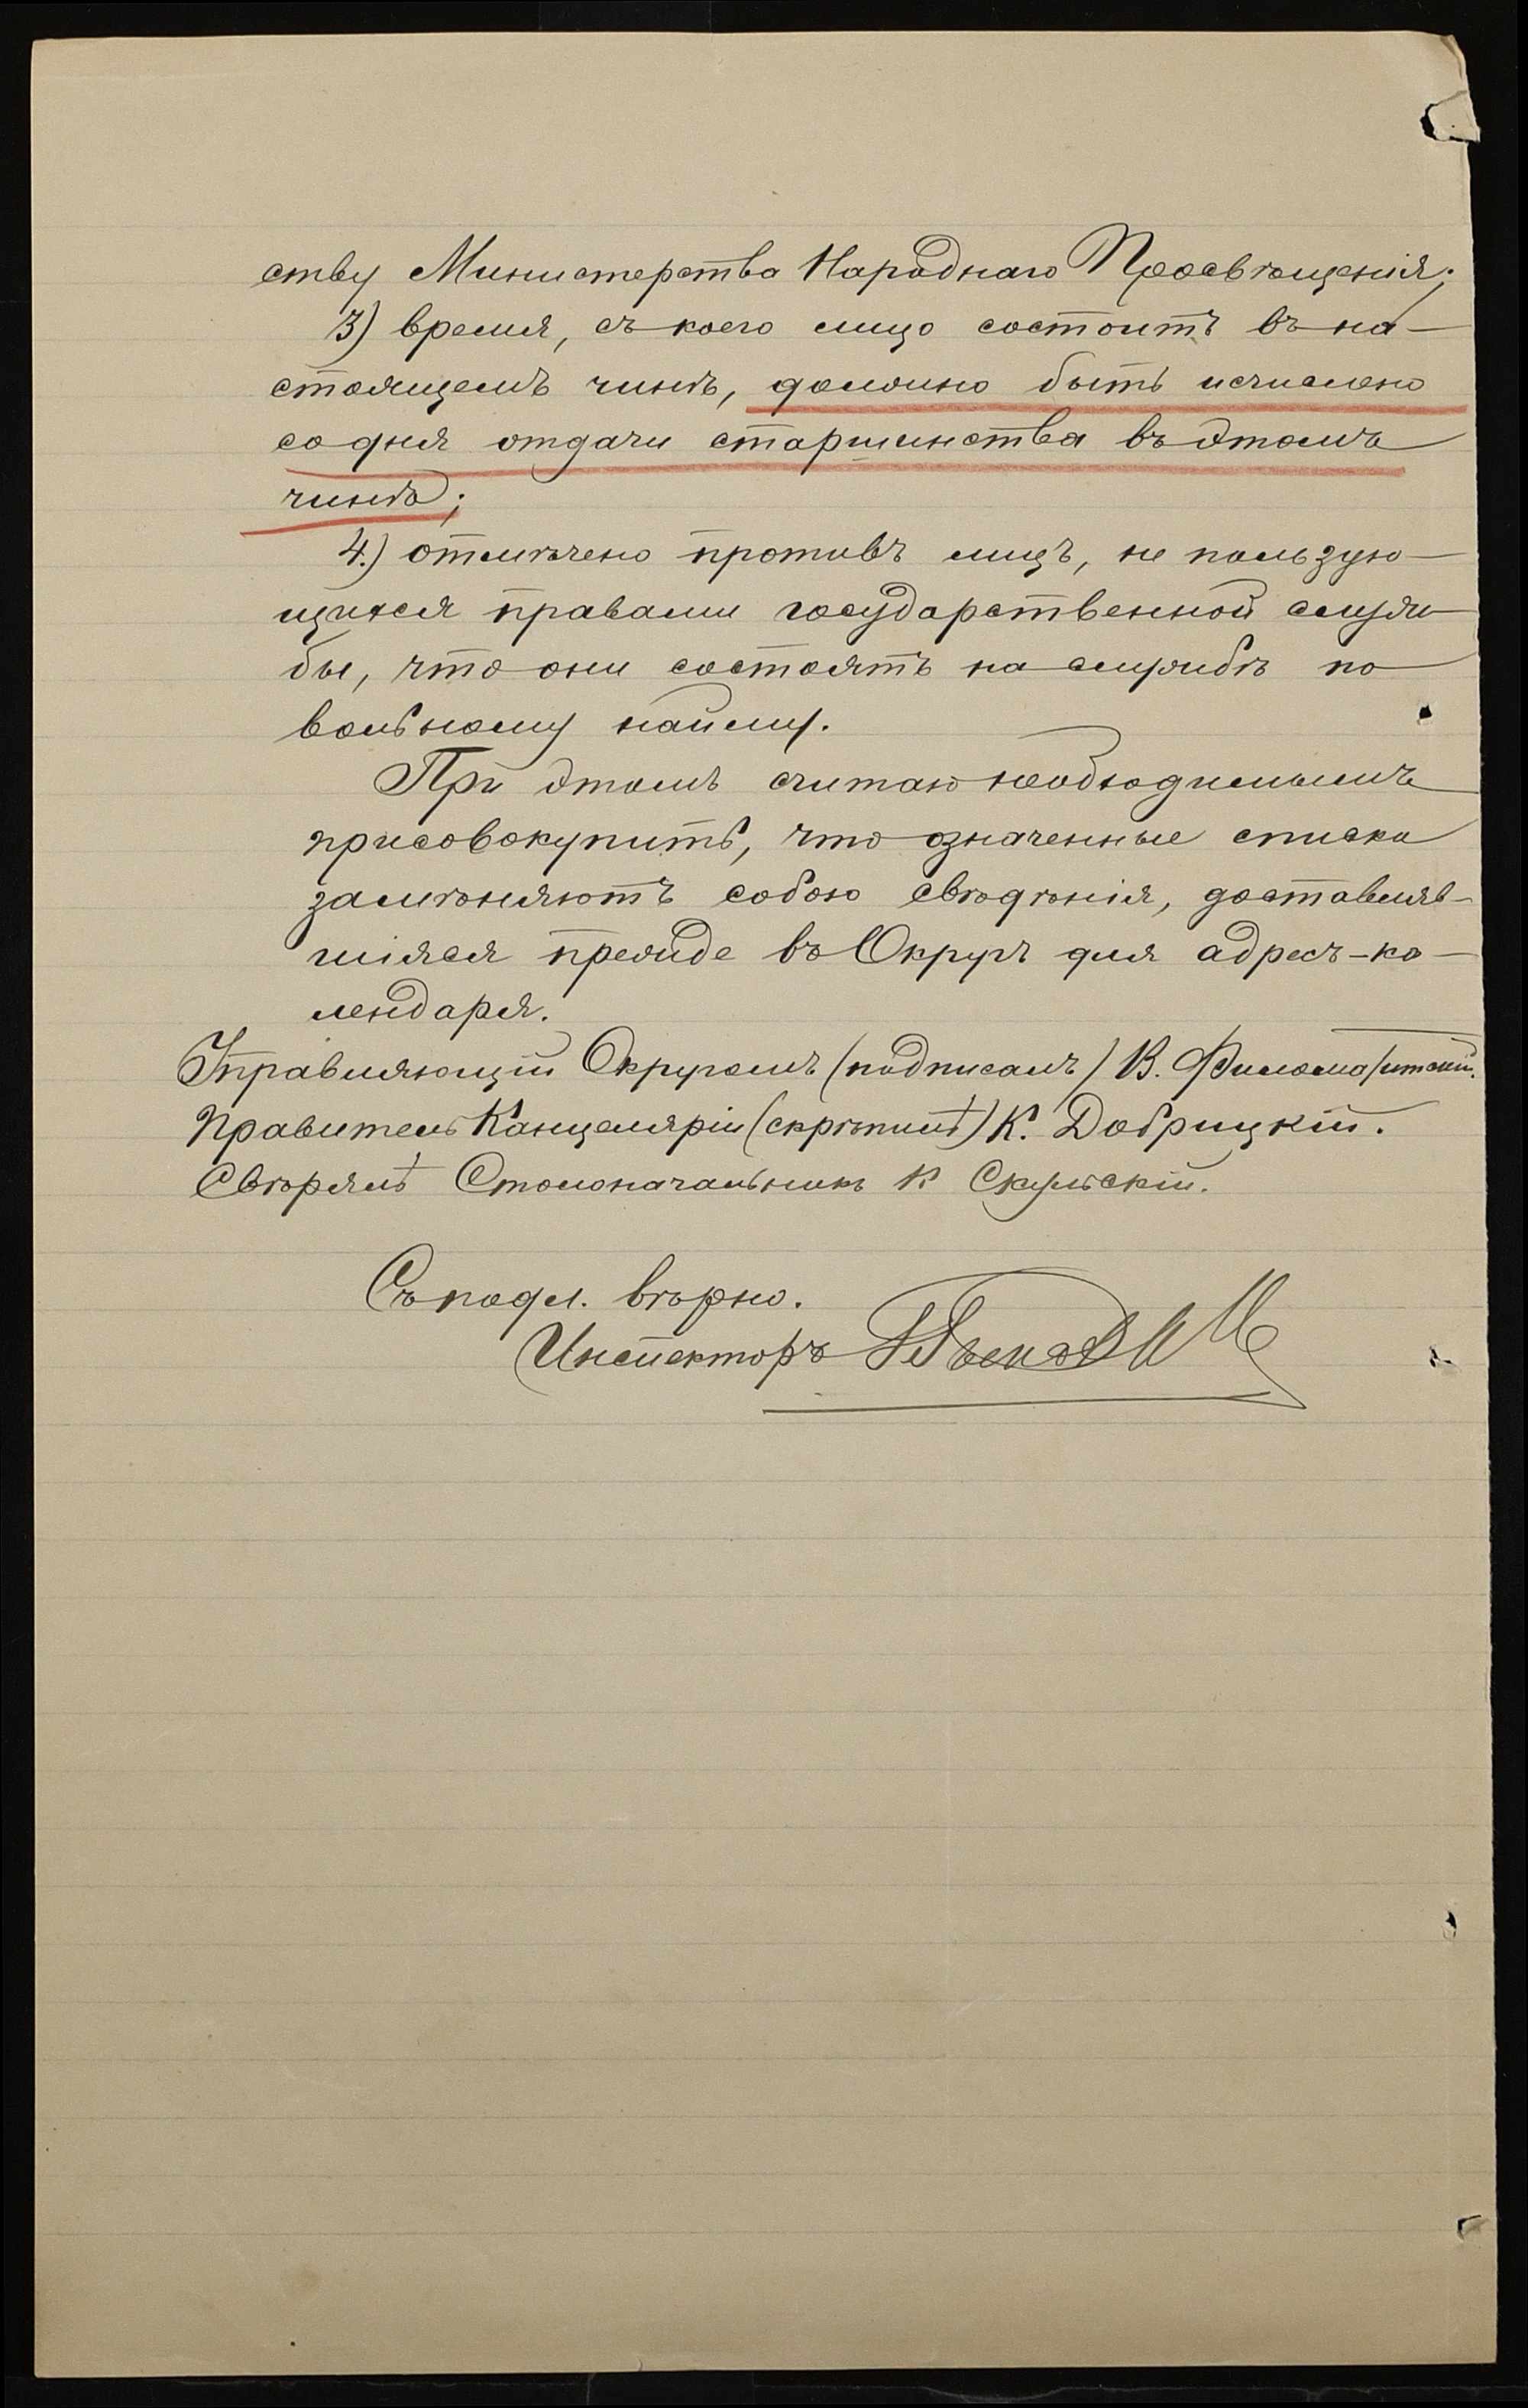 ству Министерства Народнаго Просвѣщенія;
3) время, съ коего лицо состоитъ въ на-
стоящемъ чинѣ, должно быть исчислено
со дня отдачи старшинства въ этомъ
чинѣ;
4.) отмѣчено противъ лицъ, не пользую-
щихся правами государственной служ-
бы, что они состоятъ на службѣ по
вольному найму.
При этомъ считаю необходимымъ
присовокупить, что означенные списки
замѣняютъ собою свѣдѣнія, доставляв-
шіяся прежде въ Округъ для адресъ-ка-
лендаря.
Управляющій Округомъ (подписалъ) В. Филоматитскій.
Правитель Канцеляріи (скрѣпилъ) К. Добрицкій.
Свѣрялъ Столоначальникъ К Скульскій.
Съ подл. вѣрно.
Инспекторъ